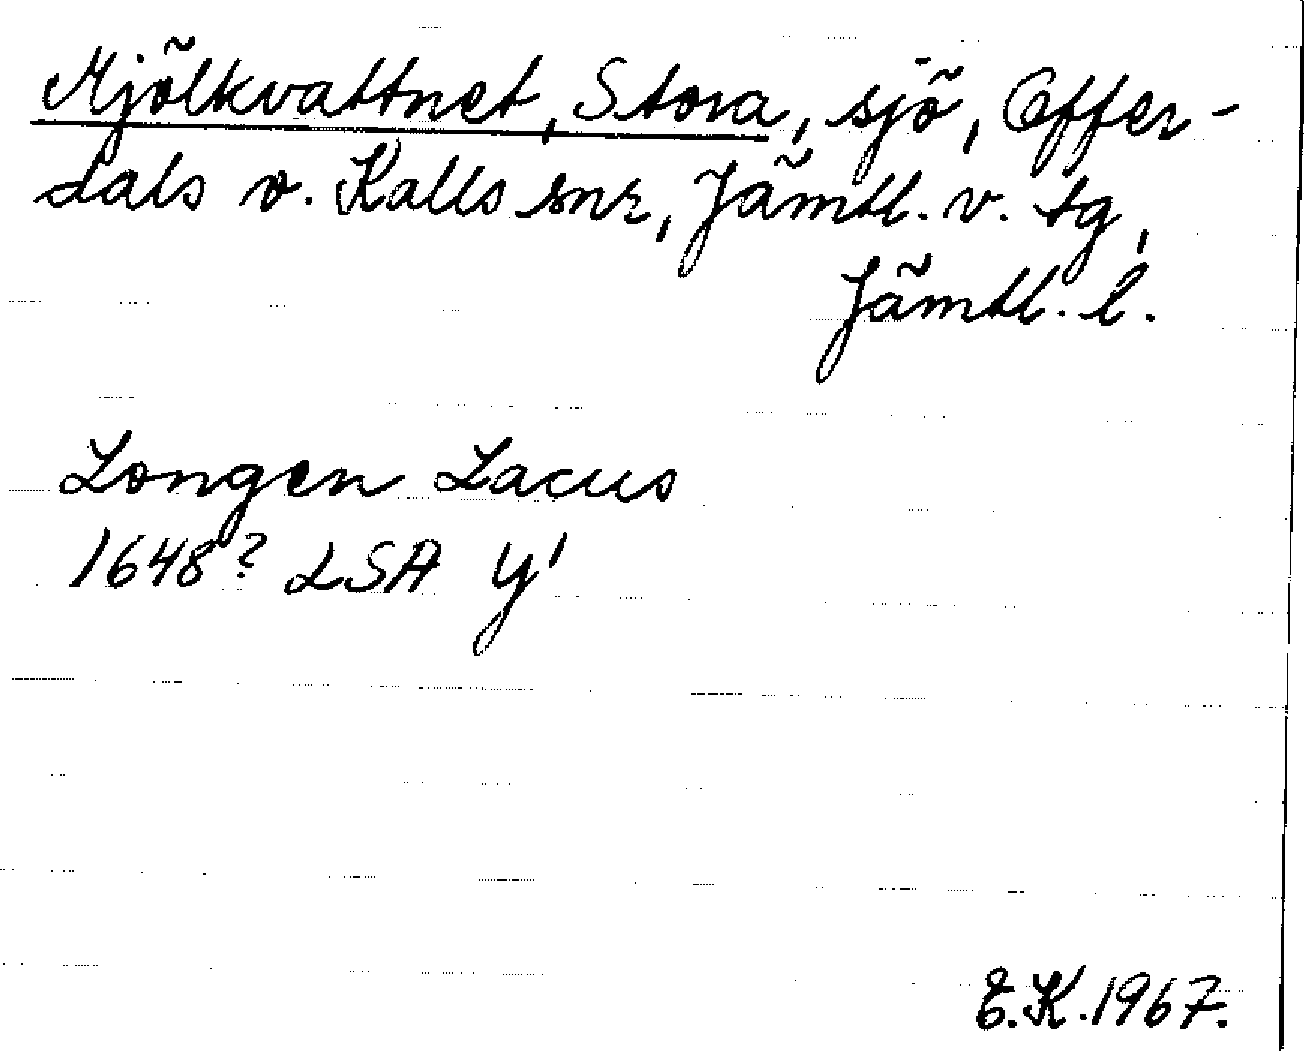 Mjölkvattnet, Stora, sjö, Offer-
dals o. Kalls snr, Jämtl. v. tg,
Jämtl. l.
Longen Lacus
1648? LSA Y1
E.K. 1967.